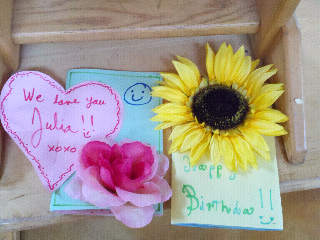 We love you
Julia!!
xoxo
Happy
Birthday!!